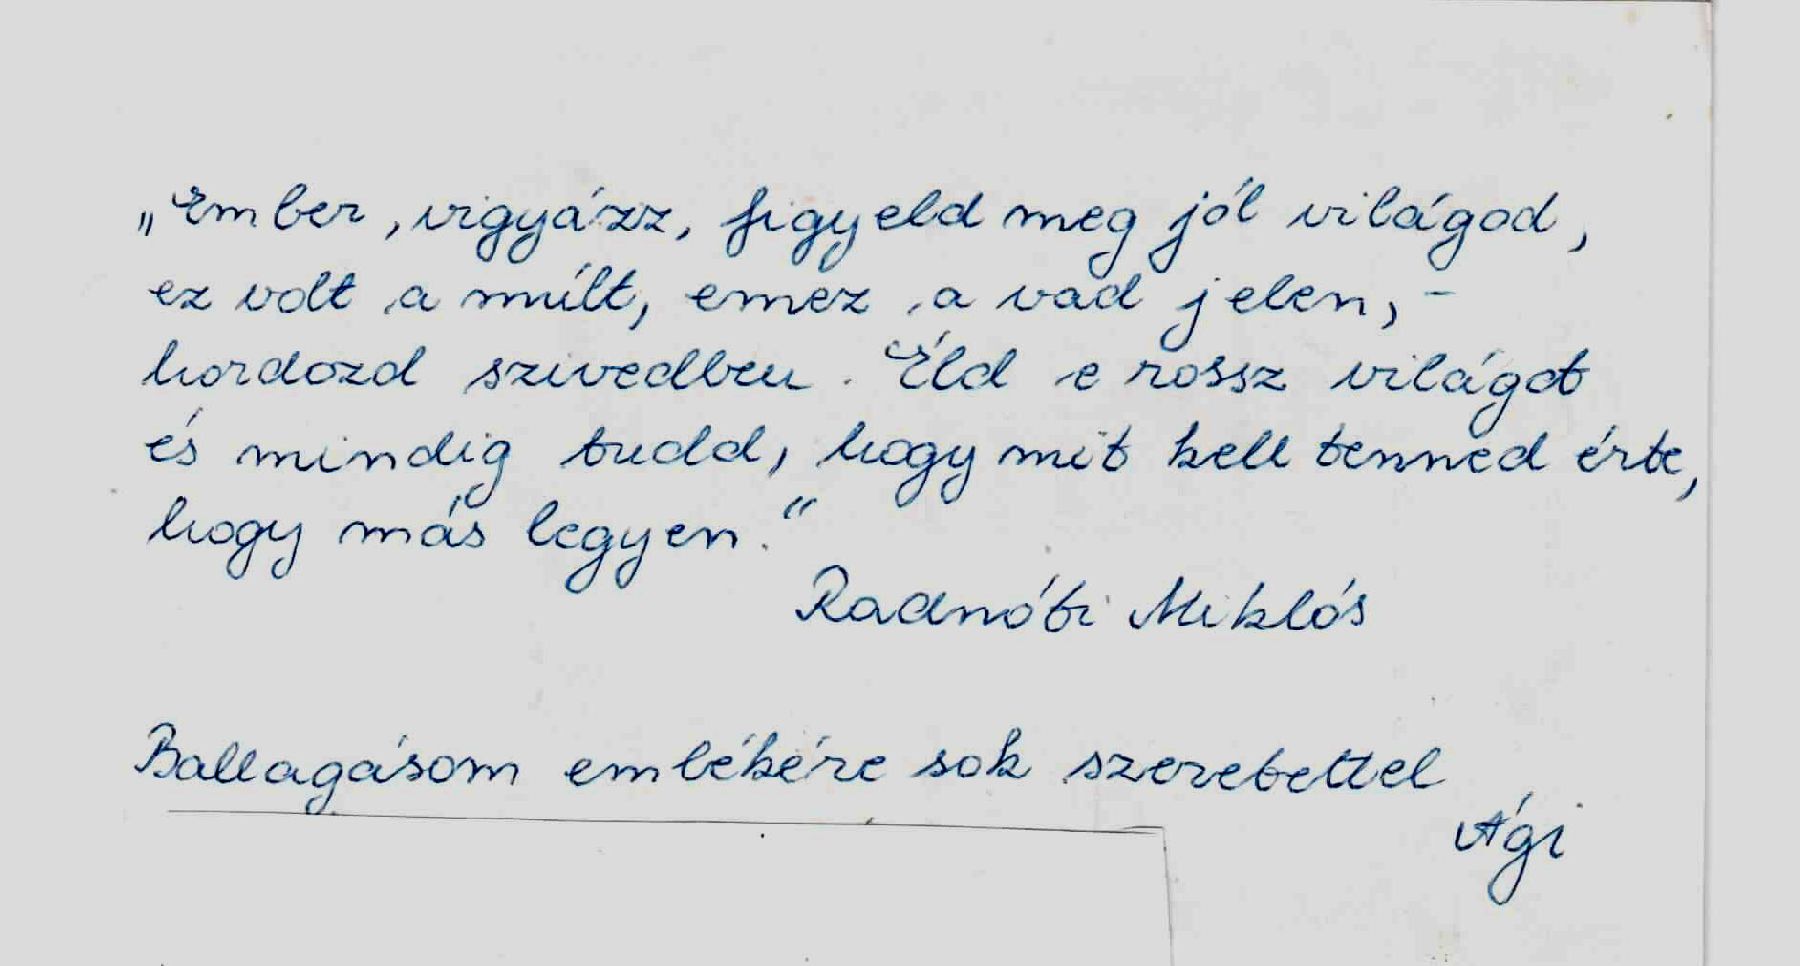 „Ember, vigyázz, figyeld meg jól világod,
ez volt a múlt, emez a vad jelen, –
hordozd szivedben. Éld e rossz világot
és mindig tudd, hogy mit kell tenned érte,
hogy más legyen.“
Radnóti Miklós
Ballagásom emlékére sok szeretettel
Ági